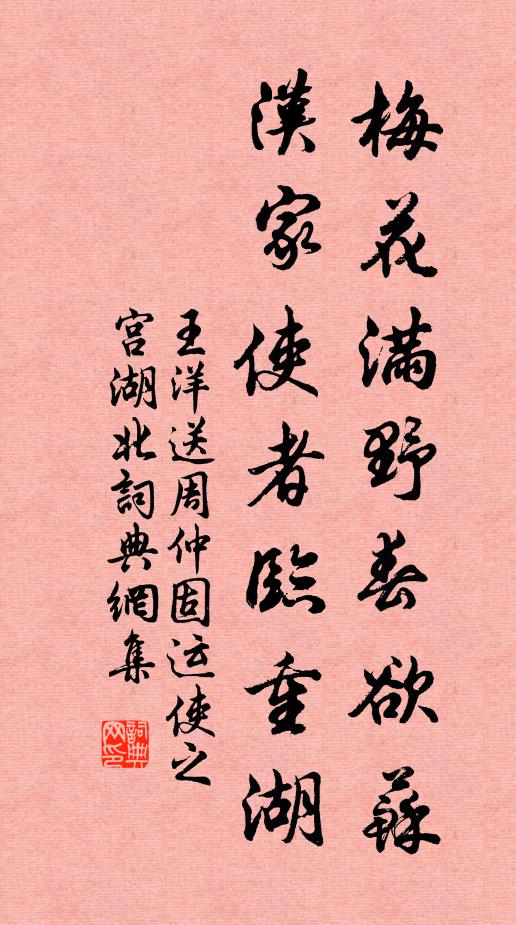 梅花滿野春欲蘇
漢家使者臨重湖
王洋送周仲固运使之
宫湖北詞典網集
詞典网印